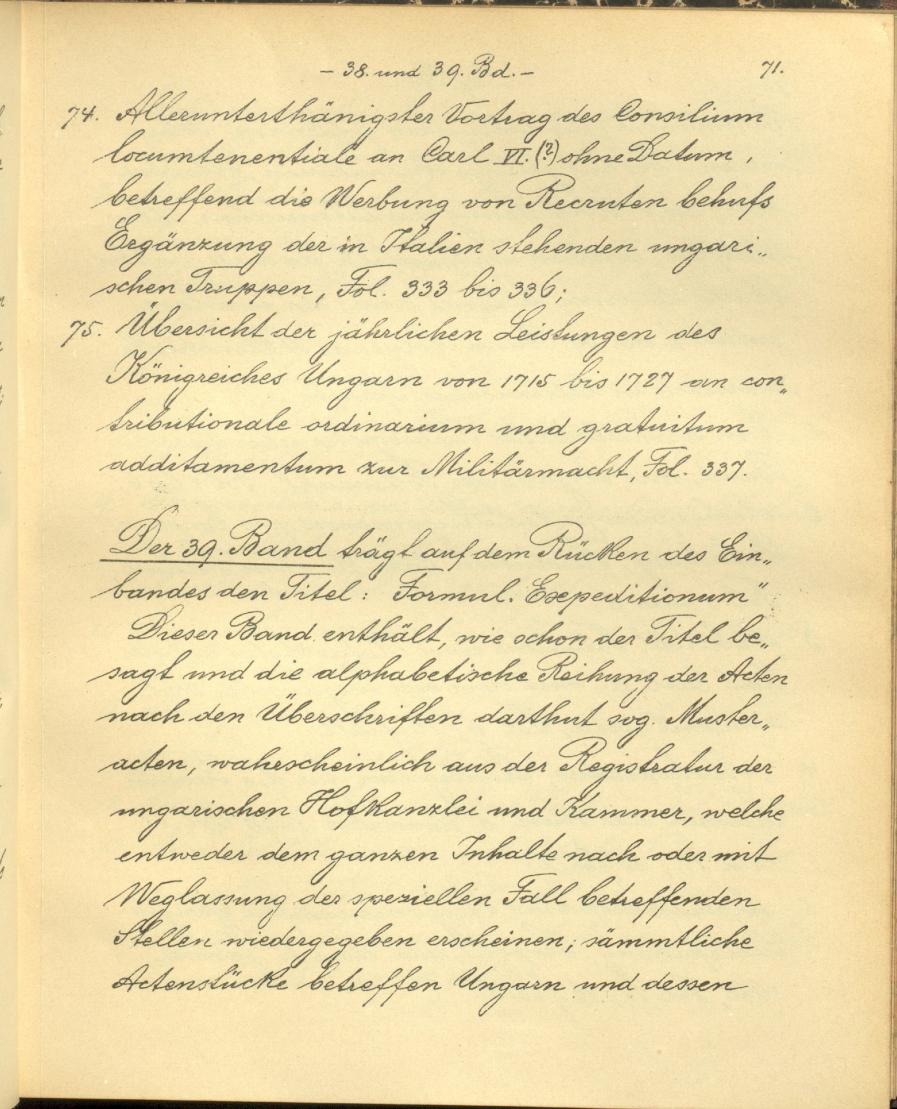 – 38. und 39. Bd. –
71.
74. Allerunterthänigster Vortrag des Consilium
locumtenentiale an Carl VI. (?) ohne Datum,
betreffend die Werbung von Recruten behufs
Ergänzung der in Italien stehenden ungari„
schen Truppen, Fol. 333 bis 336;
75. Übersicht der jährlichen Leistungen des
Königreiches Ungarn von 1715 bis 1727 an con„
tributionale ordinarium und gratuitum
additamentum zur Militärmacht, Fol. 337.
Der 39. Band trägt auf dem Rücken des Ein„
bandes den Titel: Formul. Expeditionum"
Dieser Band enthält, wie schon der Titel be„
sagt und die alphabetische Reihung der Acten
nach den Überschriften darthut sog. Muster„
acten, wahrscheinlich aus der Registratur der
ungarischen Hofkanzlei und Kammer, welche
entweder dem ganzen Inhalte nach oder mit
Weglassung der speziellen Fall betreffenden
Stellen wiedergegeben erscheinen; sämmtliche
Actenstücke betreffen Ungarn und dessen